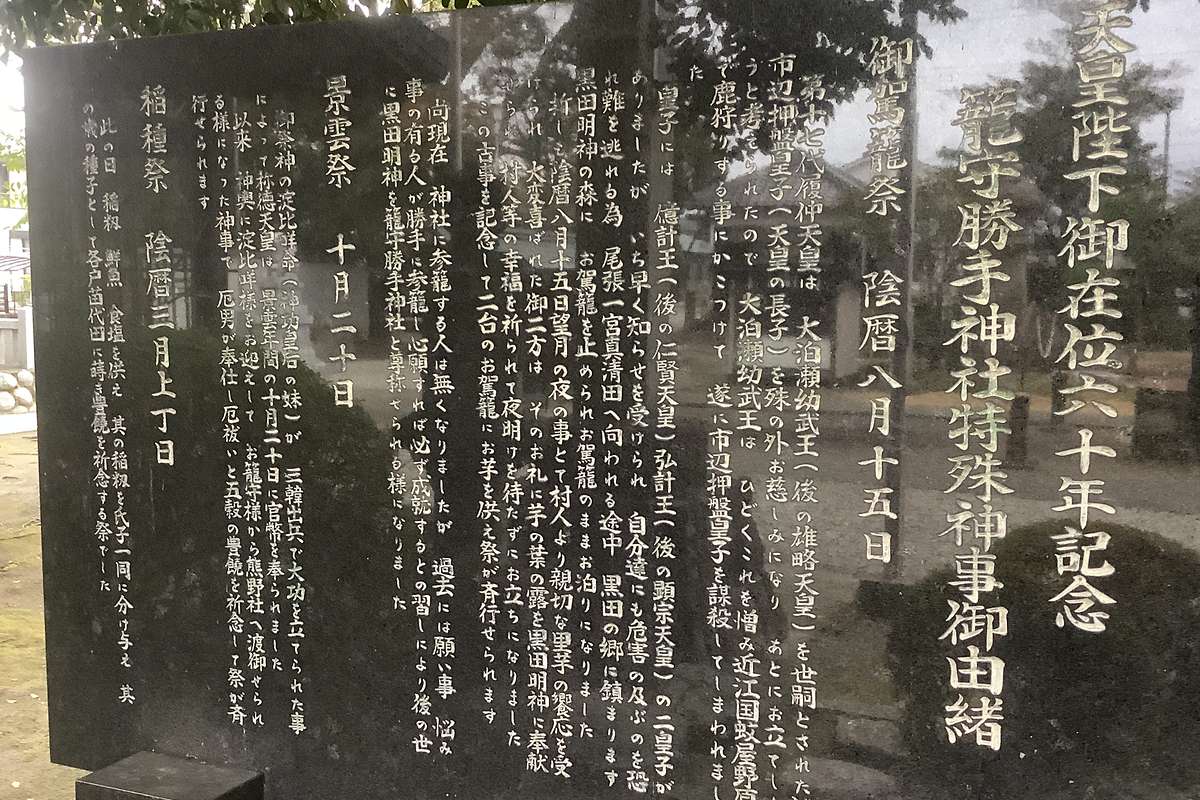 天皇陛下御在位六十年記念
籠守勝手神社特殊神事御由緒
御駕籠祭 陰暦八月十五日
第十七代履仲天皇は 大泊瀬幼武王(後の雄略天皇)を世嗣とされた
市辺押盤皇子(天皇の長子)を殊の外お慈しみになり あとにお立てし
うと考えてられたので 大泊瀬幼武王は ひどくこれを憎み近江国蚊屋野原
で鹿狩りする事にかこつけて 遂に市辺押盤皇子を謀殺してしまわれまし
た
皇子には 億計王(後の仁賢天皇)弘計王(後の顕宗天皇)の二皇子が
ありましたが いち早く知らせを受けられ 自分達にも危害の及ぶのを恐
れ難を逃れる為 尾張一宮真清田へ向われる途中 黒田の郷に鎮まります
黒田明神の森に お駕籠を止められお駕籠のままお泊りになりました
折しも陰暦八月十五日望月の夜の事とて村人より親切な里芋の饗応を受
けられ 大変喜ばれた御二方は そのお礼に芋の葉の露を黒田明神に奉献
られ 村人等の幸福を祈られて夜明けを待たずにお立ちになりました
この古事を記念して二台のお駕籠にお芋を供え祭が斉行せられます
尚現在 神社に参籠する人は無くなりましたが 過去には願い事 悩み
事の有る人が勝手に参籠し心願すれば必ず成就するとの習しにより後の世
に黒田明神を籠守勝手神社と尊称せられる様になりました
景雲祭 十月二十日
御祭神の淀比咩命(神功皇后の妹)が 三韓出兵で大功を立てられた事
によって称徳天皇は 景雲年間の十月二十日に官幣を奉られました
以来 神輿に淀比咩様をお迎えして お籠守様から熊野社へ渡御せられ
る様になった神事で 厄男が奉仕し厄祓いと五穀の豊饒を祈念して祭が斉
行せられます
稲種祭 陰暦三月上丁日
此の日 稲籾 鮮魚 食塩を供え 其の稲籾を氏子一同に分け与え 其
の儀の種子として各戸苗代田に蒔き豊饒を祈念する祭でした